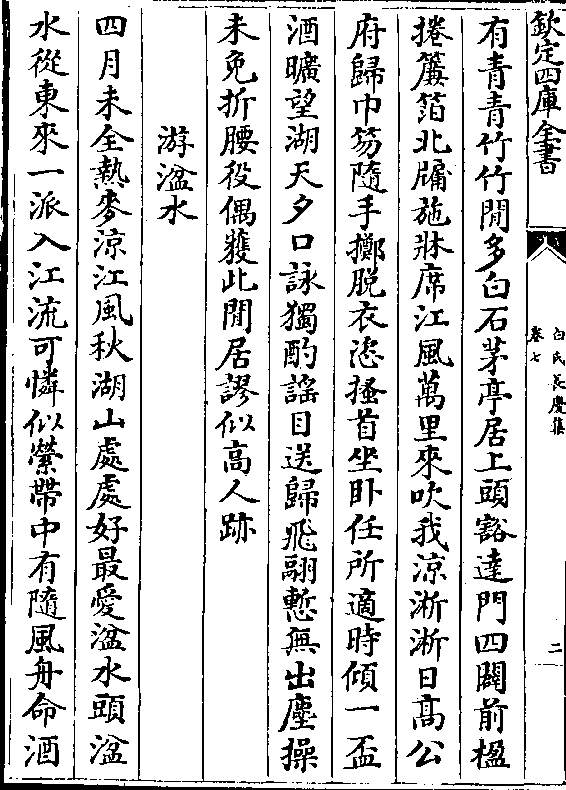 欽定四庫全書
白氏長慶集
卷七
二
有青青竹竹間多白石茅亭居上頭豁達門四闢前楹
捲簾箔北牖施牀席江風萬里來吹我涼淅淅日高公
府歸巾笏隨手擲脱衣恣搔首坐卧任所適時傾一盃
酒曠望湖天夕口詠獨酌謠目送歸飛翮慙無出塵操
未免折腰役偶獲此閒居謬似高人跡
游湓水
四月未全熱麥涼江風秋湖山處處好最愛湓水頭湓
水從東來一派入江流可憐似縈帶中有隨風舟命酒